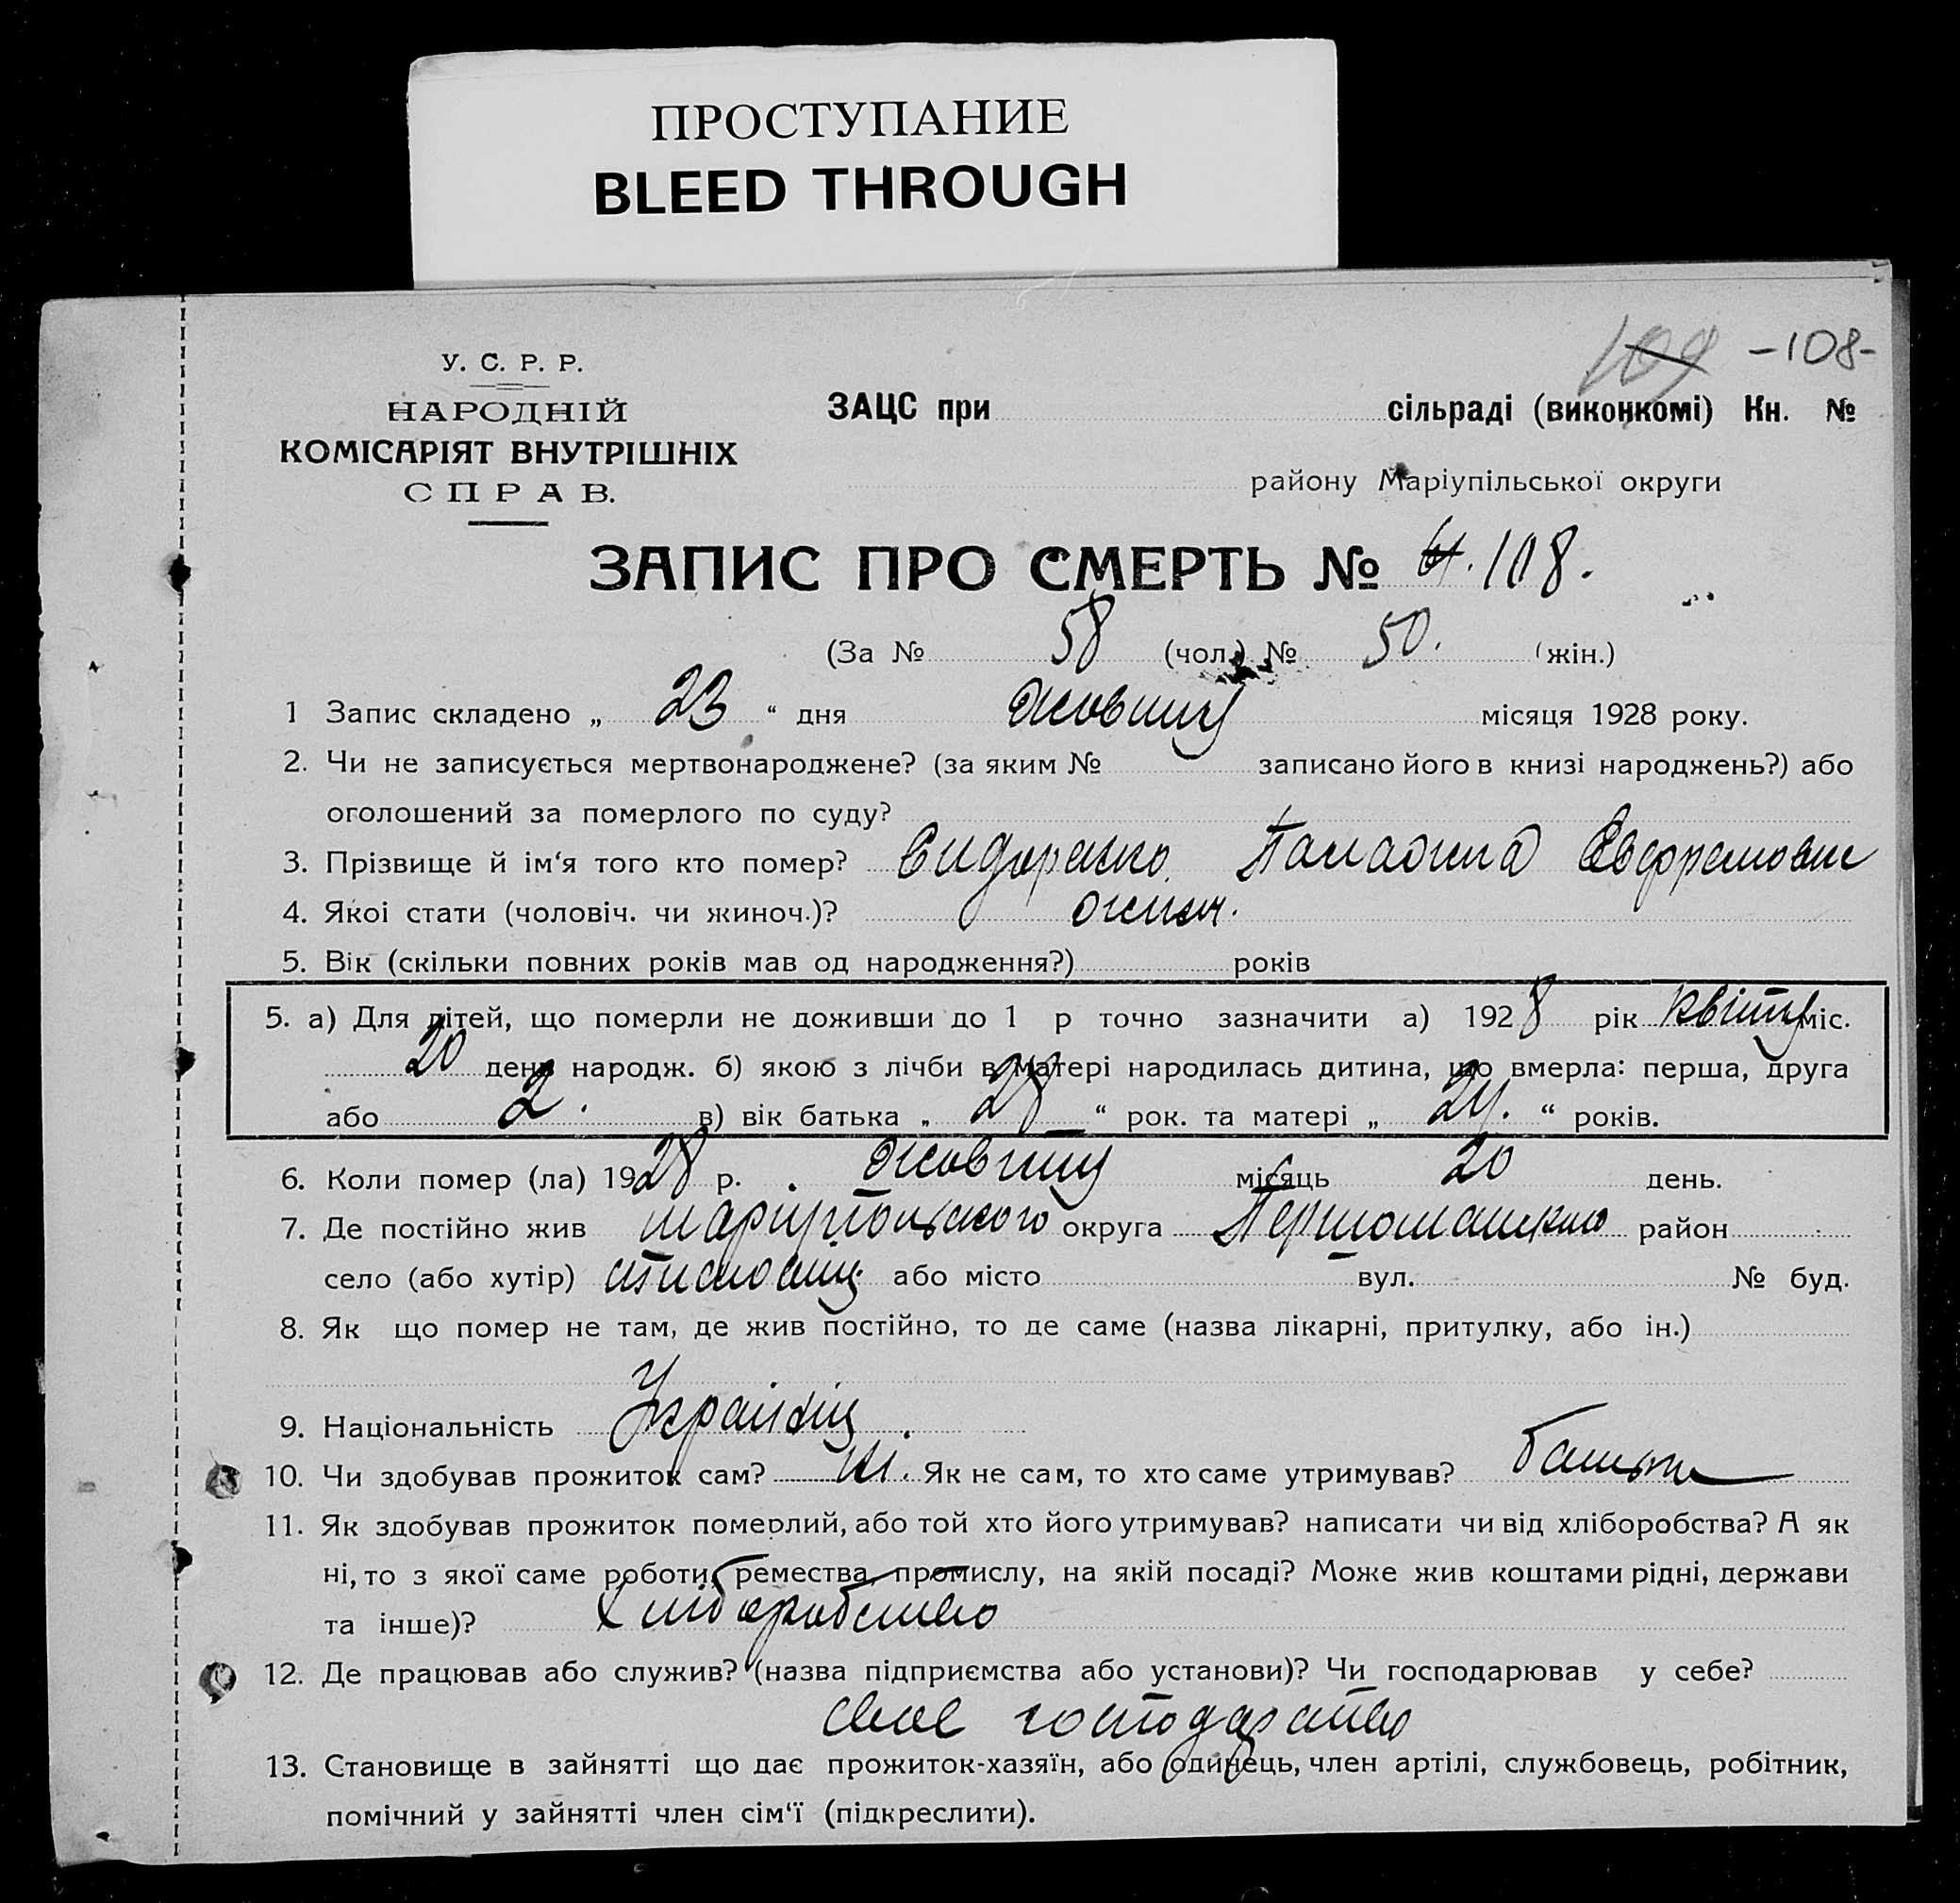 ПРОСТУПАНИЕ
BLEED THROUGH
109 -108-
У. С. Р. Р.
НАРОДНІЙ
КОМІСАРІЯТ ВНУТРІШНІХ
СПРАВ.
ЗАЦС при сільраді (виконкомі) Кн. №
району Маріупільської округи
ЗАПИС ПРО СМЕРТЬ № 108.
(За № 58 (чол.) № 50. (жін.)
1 Запис складено „ 23 “ дня Жовтня місяця 1928 року.
2. Чи не записується мертвонароджене? (за яким № записано його в книзі народжень?) або
оголошений за померлого по суду?
3. Прізвище й ім‘я того хто помер? Сидоренко
4. Якоі стати (чоловіч. чи жиноч.)? жіноч.
5. Вік (скільки повних років мав од народження?) років
5. а) Для дітей, що померли не доживши до 1 р точно зазначити а) 1928 рік квітня міс.
20 день народж. б) якою з лічби в матері народилась дитина, що вмерла: перша, друга
або 2. в) вік батька „ 28 “ рок. та матері „ 24. “ років.
6. Коли помер (ла) 1928 р. Жовтня місяць 20 день.
7. Де постійно жив Маріупольского округа район
село (або хутір) або місто вул. № буд.
8. Як що помер не там, де жив постійно, то де саме (назва лікарні, притулку, або ін.)
9. Національність
10. Чи здобував прожиток сам? ні. Як не сам, то хто саме утримував? батьки
11. Як здобував прожиток померлий, або той хто його утримував? написати чи від хліборобства? А як
ні, то з якої саме роботи, ремества, промислу, на якій посаді? Може жив коштами рідні, держави
та інше)? Хліборобство
12. Де працював або служив? (назва підприємства або установи)? Чи господарював у себе?
своє господарство
13. Становище в зайнятті що дає прожиток-хазяїн, або одинець, член артілі, службовець, робітник,
помічний у зайнятті член сім‘ї (підкреслити).